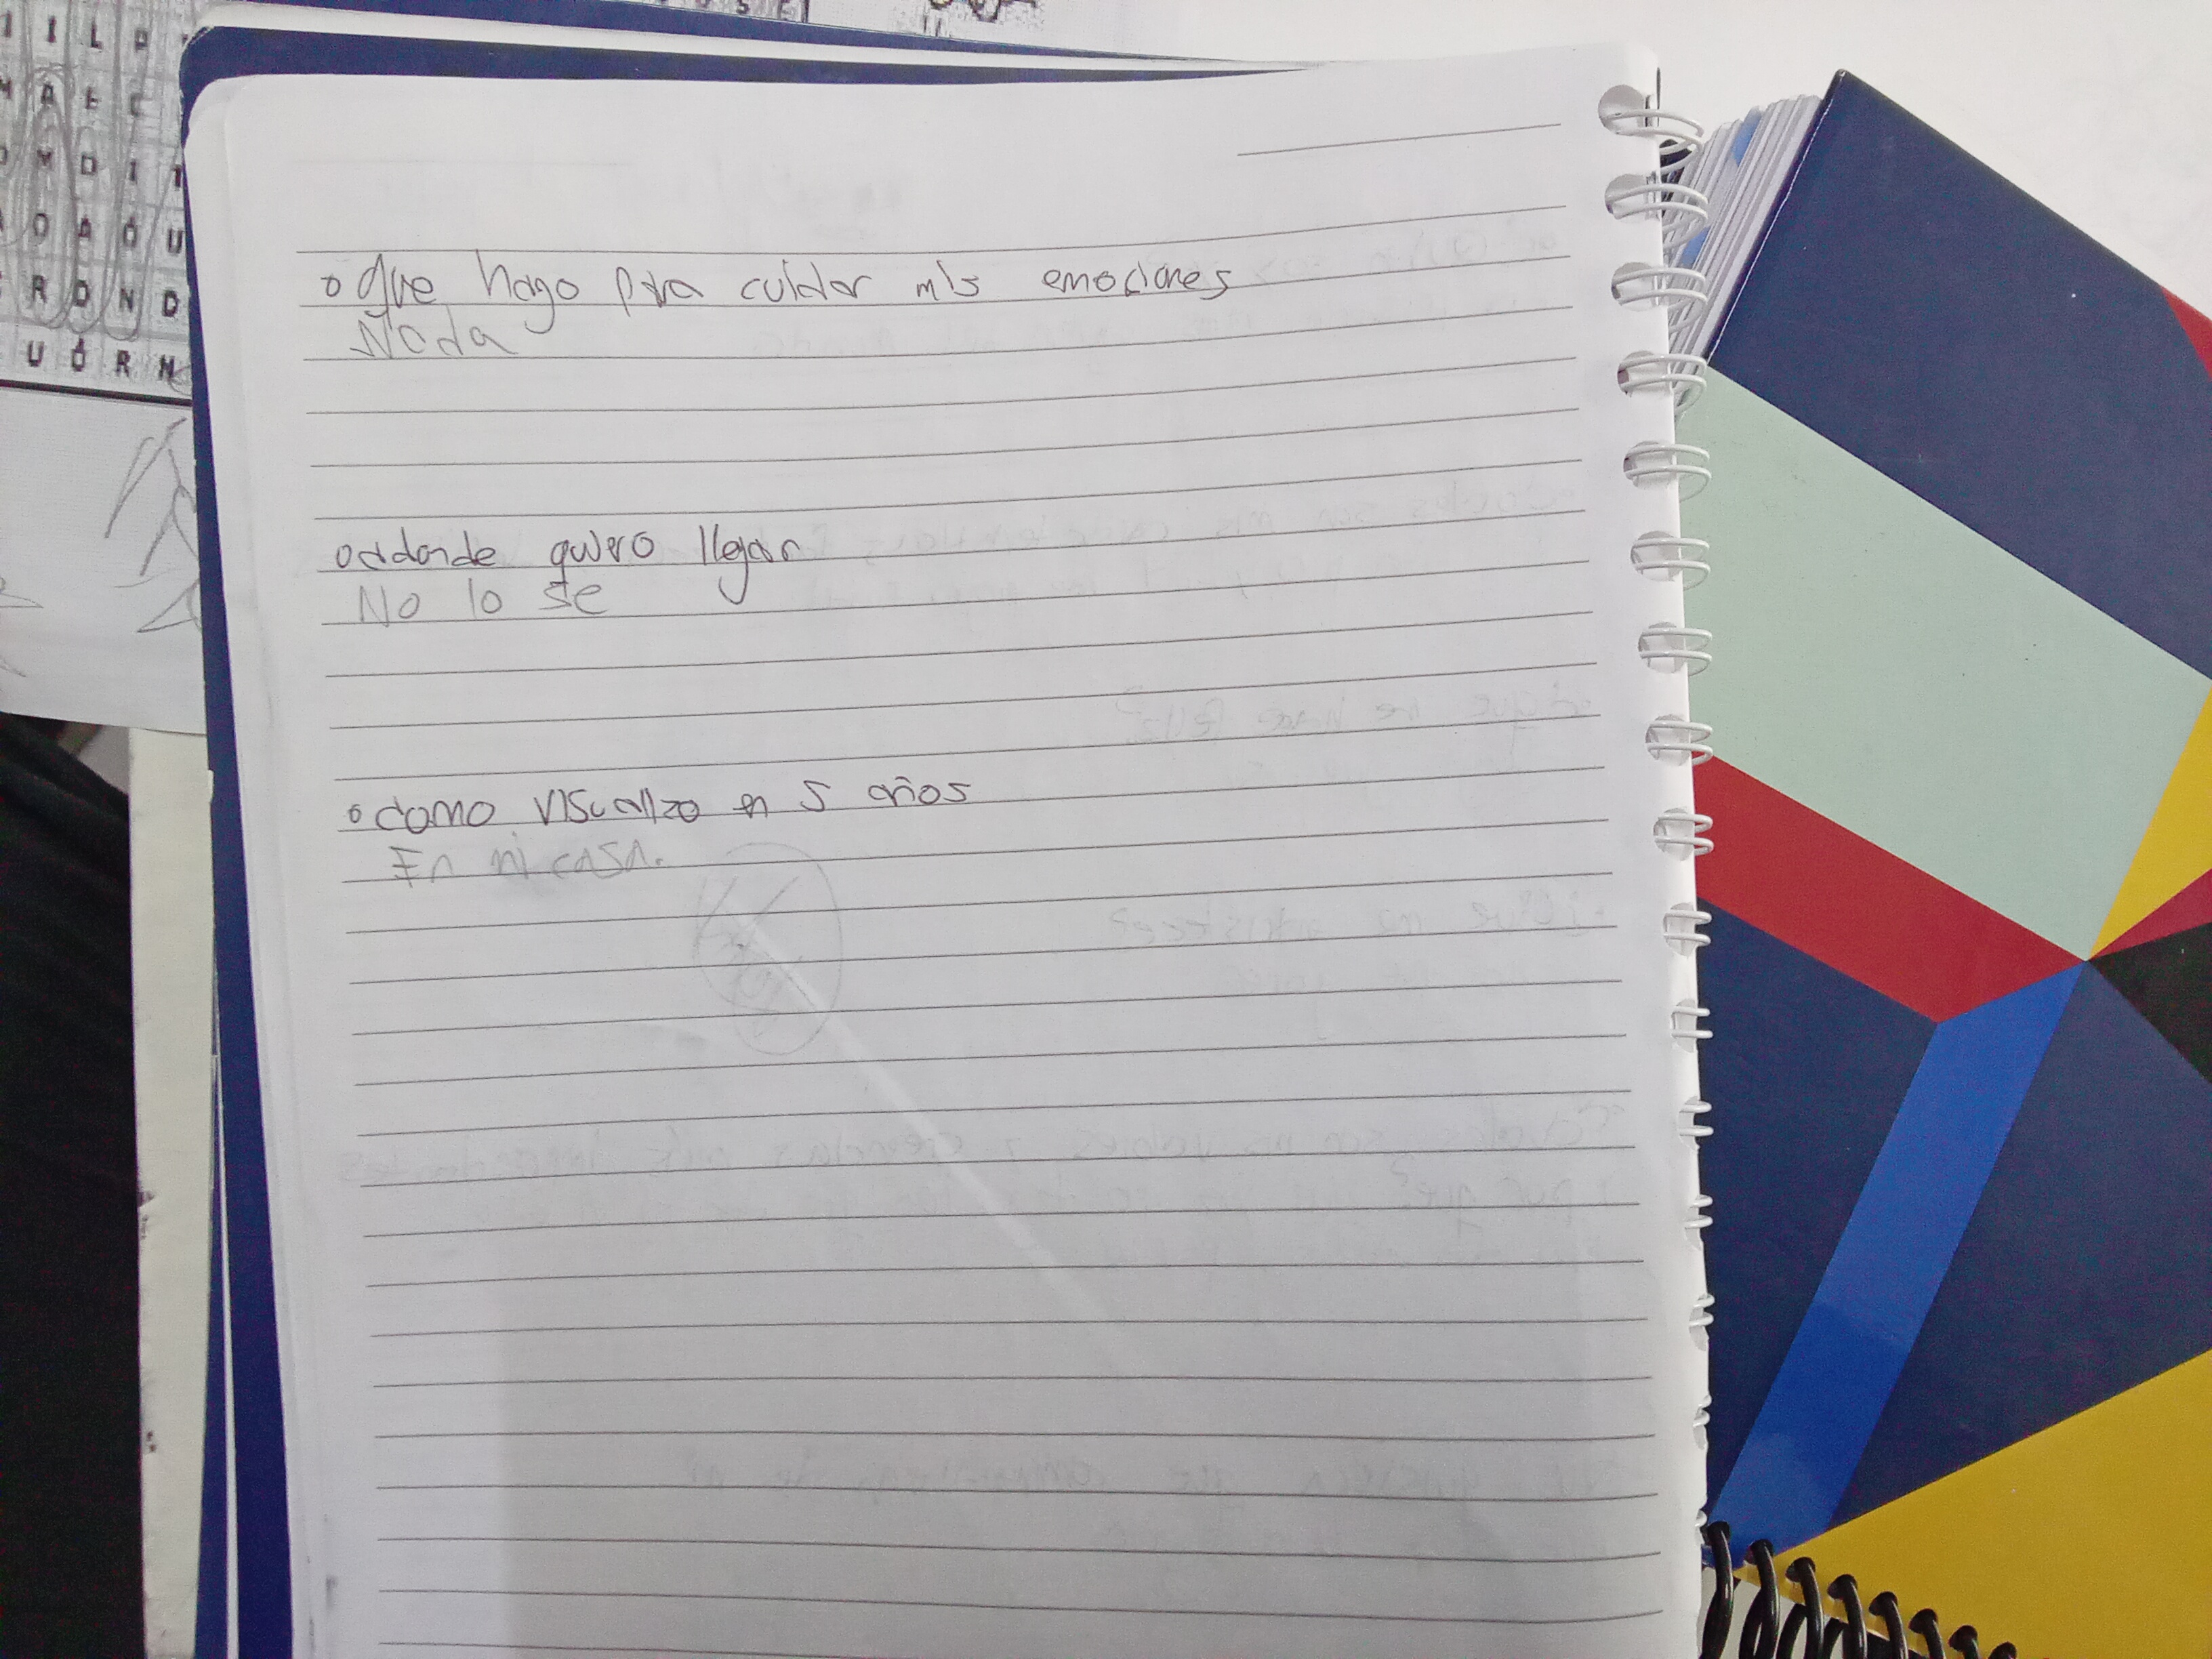 I I L P
M A E C
O M D I T
O A Ó U
R D N D
U Ó R N
o Que hago para cuidar mis emociones
Nada
o adonde quiero llegar
No lo se
o como visualizo en 5 años
En mi casa.